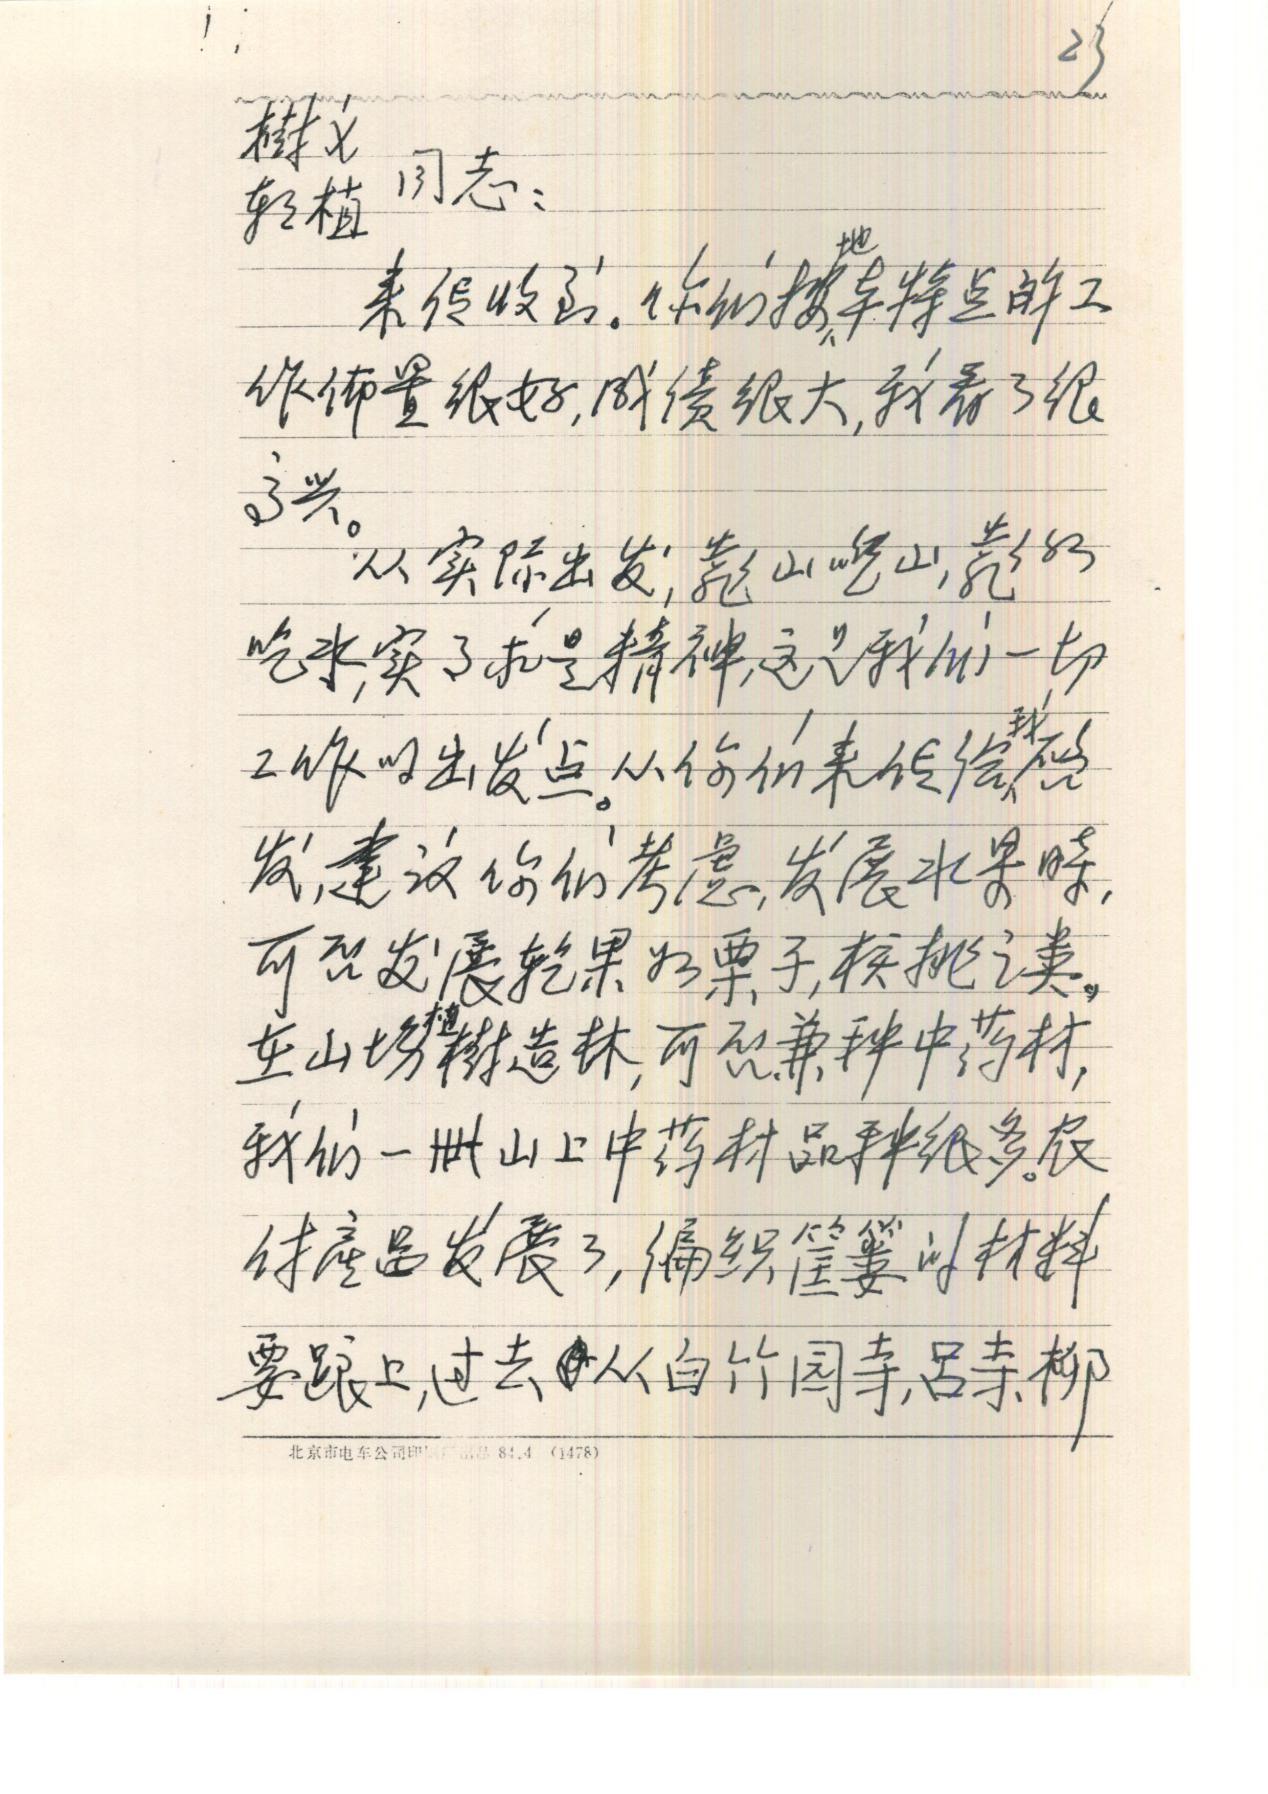 23
樹文
乾植 同志：
来信收到。你们按地本特点的工
作佈置很好，成绩很大，我看了很
高兴。
从实际出发，靠山吃山，靠水
吃水，实事求是精神，这是我们一切
工作的出发点。从你们来信给我啟
发，建议你们考虑，发展水果时，
可否发展乾果如栗子，核桃之类。
在山场植樹造林，可否兼种中药材，
我们一卅山上中药材品种很多。农
付產品发展了，编织筐篓的材料
要跟上，过去从白竹园寺，吕寺、柳
北京市电车公司印刷厂出品 84.4 (1478)